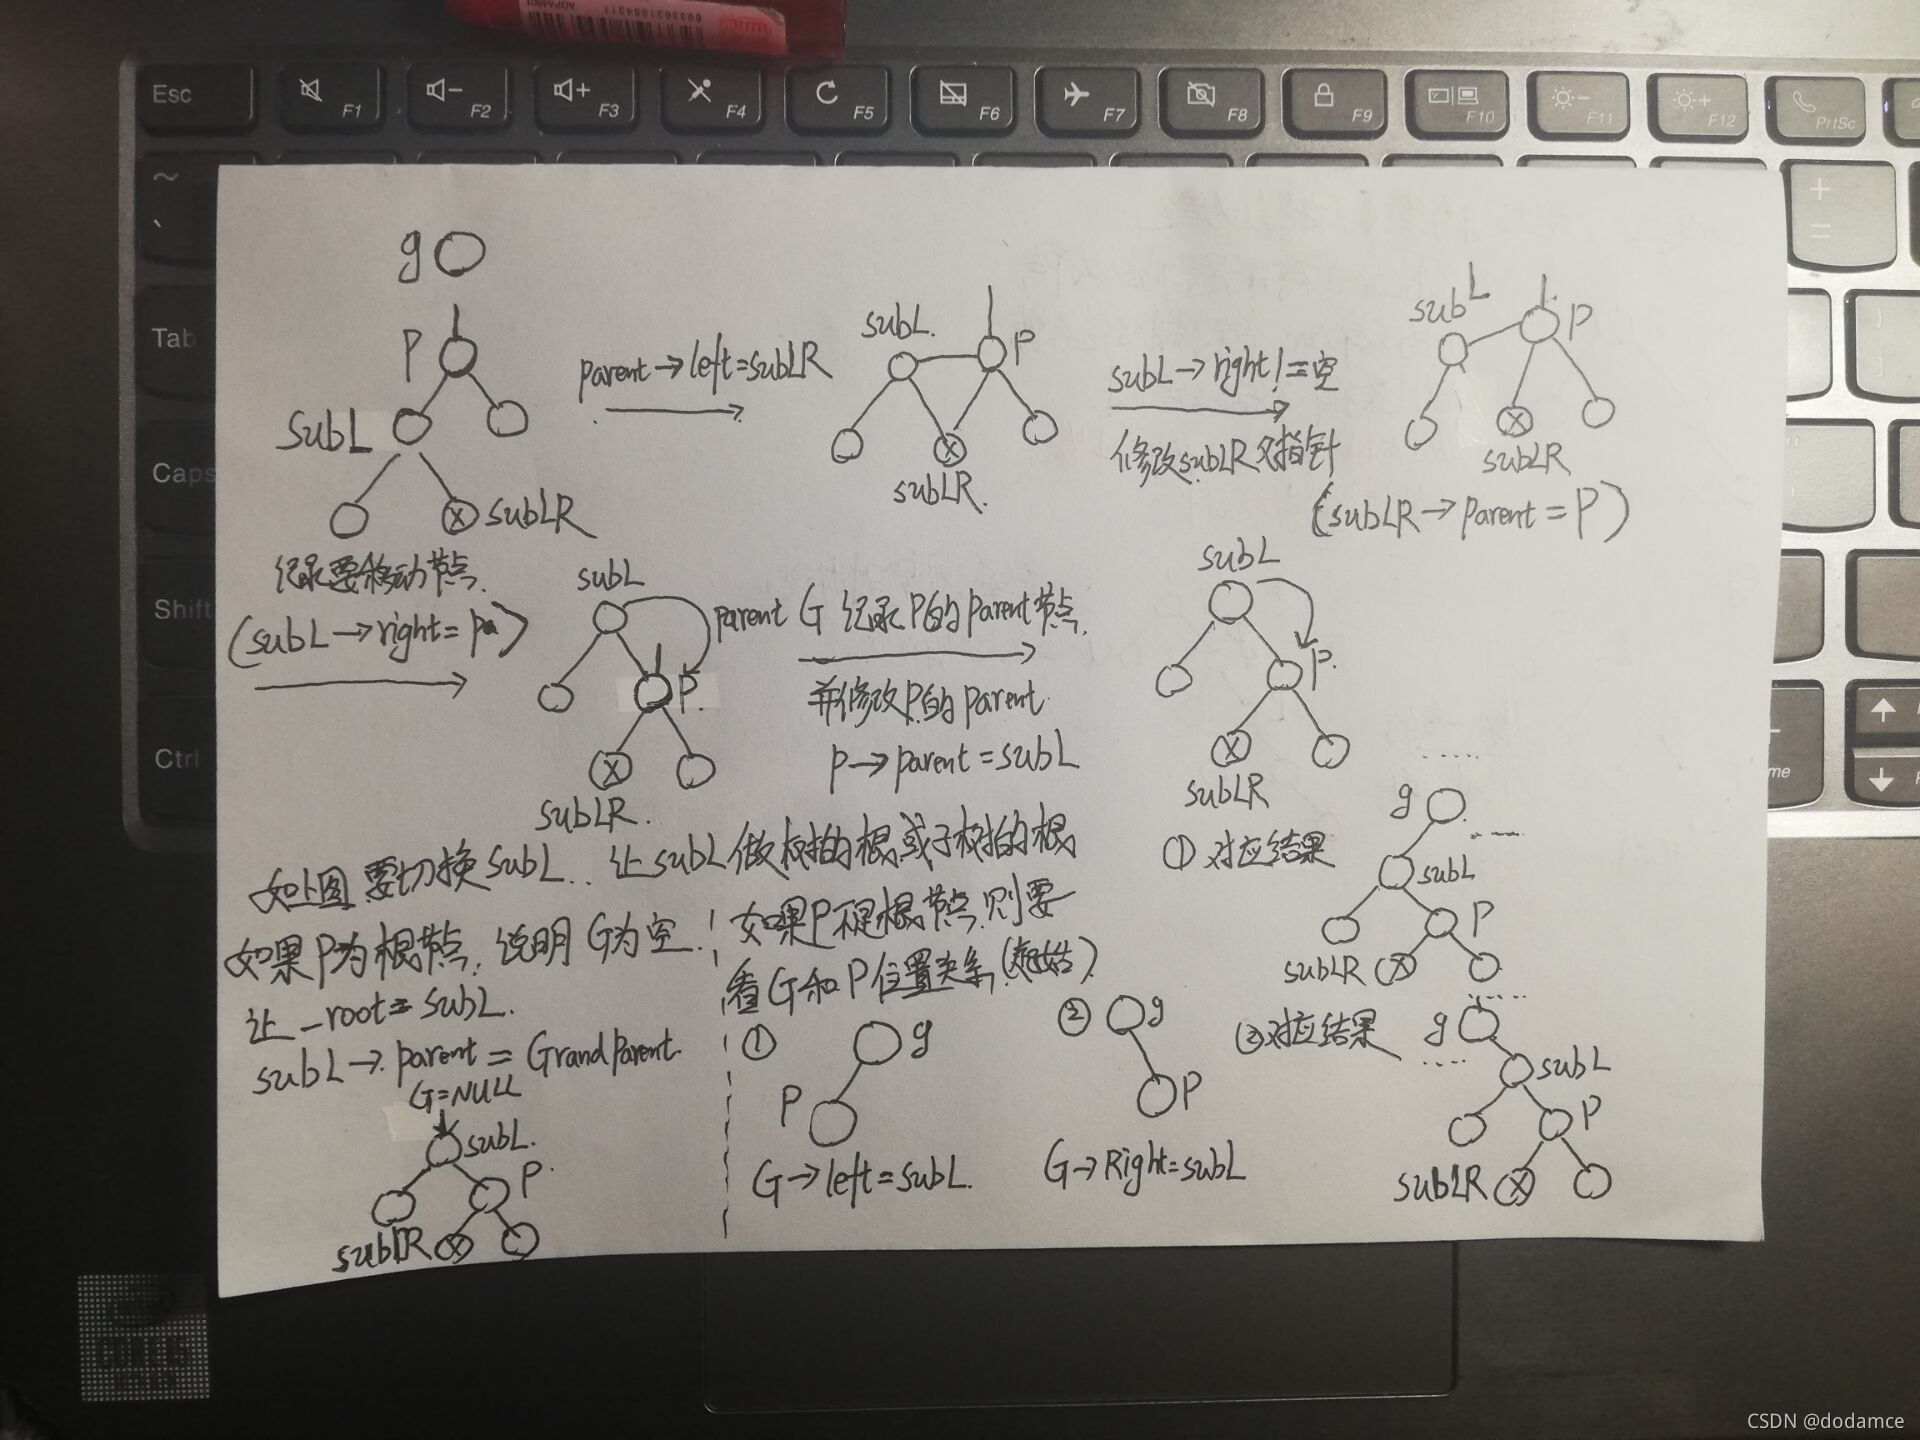 Esc
F1
F2
F3
F4
F5
F6
F7
F8
F9
F10
F11
F12
PrtSc
Tab
Caps
Shift
Ctrl
g
P
subL
subLR
parent→left=subLR
subL.
P
subLR.
subL→right!=空
修改subLR父指针
subL
P
subLR
(subLR→parent=P)
记录要移动节点.
(subL→right=P)
subL
P.
subLR.
parent G 记录P的parent节点.
并修改P的parent.
P→parent=subL
subL
P.
subLR
如上图要切换subL.. 让subL做树的根或子树的根
如果P为根节点,说明G为空.
让_root=subL.
subL→parent=GrandParent.
G=NULL
subL.
P.
subLR
如果P不是根节点,则要
看G和P位置关系
① g
P
G→left=subL.
② g
P
G→Right=subL
①对应结果
g
subL
P
subLR
②对应结果
g
subL
P
subLR
CSDN @dodamce